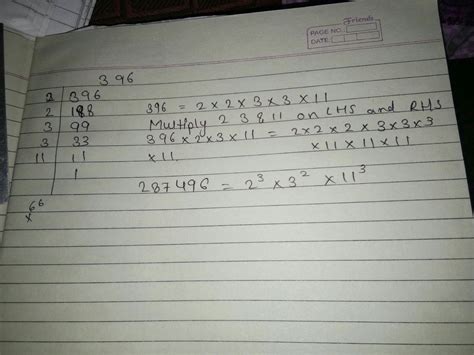 Friends
PAGE NO.
DATE
396
2 | 396
2 | 188
3 | 99
3 | 33
11 | 11
1
396 = 2×2×3×3×11
Multiply 2 3 & 11 on LHS and RHS
396×2×3×11 = 2×2×2×3×3×3
×11. ×11×11×11
287496 = 2³ × 3² × 11³
66
×